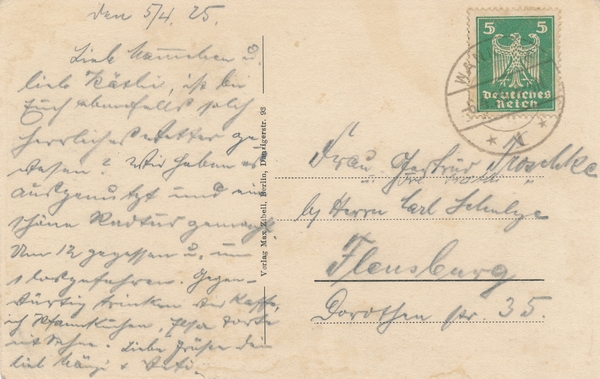 den 5/4. 25.
Lieb Hännchen u.
lieb Käthi, ist bei
Euch ebenfalls solch
herrliches Wetter ge-
wesen? Wir haben es
ausgenutzt und eine
schöne Radtur gemacht
Um 12 gegessen u. um
1 losgefahren. Gegen-
wärtig trinken wir Kaffe,
ich Pfannkuchen, Elsa Torte
mit Sahne. Liebe Grüße
lieb
Verlag Max Zabell, Berlin, Danzigerstr. 93
5 5
Deutsches
Reich
WAN
Frau Gertrud Troschke
bei Herrn Carl Schulze
Flensburg
Dorotheen str. 35.